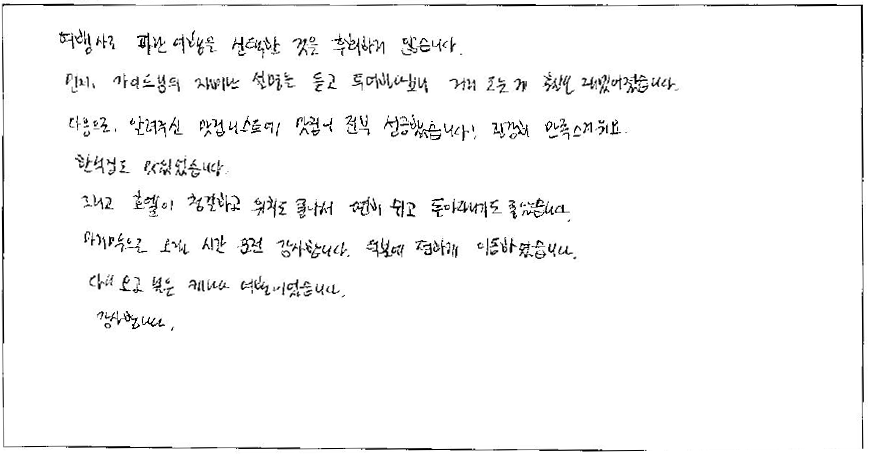 여행사로 패난 여행을 선택한 것은 후회하지 않습니다.
먼저, 가이드님의 재미난 설명을 듣고 투어하니 거리 오는게 훨씬 재밌어졌습니다.
다음으로, 알려주신 맛집리스트에 맛집이 전부 성공했습니다! 굉장히 만족스러워요.
한식집도 맛있었습니다.
그리고 호텔이 청결하고 위치도 좋아서 편히 쉬고 돌아다니기도 좋았습니다.
마지막으로 오랜 시간 운전 감사합니다. 덕분에 편하게 이동하였습니다.
다시 오고 싶은 캐나다 여행이었습니다.
감사합니다.